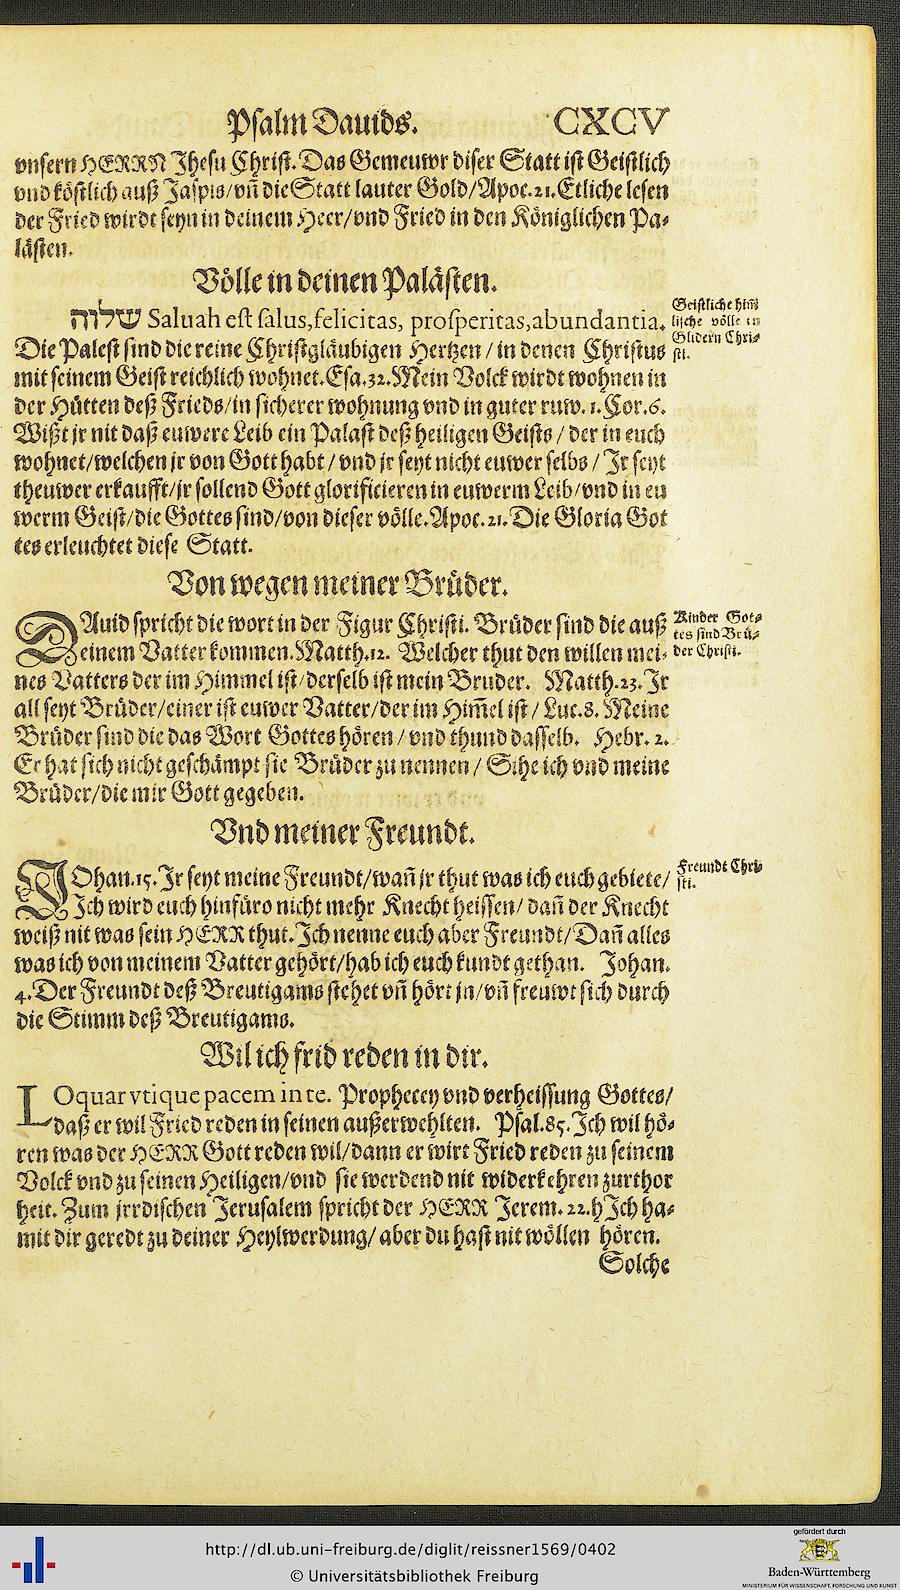 Psalm Dauids. CXCV
vnsern HERRN Jhesu Christ. Das Gemeuwr diser Statt ist Geistlich
vnd köstlich auß Jaspis/vñ die Statt lauter Gold/Apoc.21.Etliche lesen
der Fried wirdt seyn in deinem Heer/vnd Fried in den Königlichen Pa-
lästen.
Völle in deinen Palästen.
שלוה Saluah est salus, felicitas, prosperitas, abundantia.
Die Palest sind die reine Christgläubigen Hertzen / in denen Christus
mit seinem Geist reichlich wohnet. Esa.32. Mein Volck wirdt wohnen in
der Hütten deß Frieds/in sicherer wohnung vnd in guter ruw. 1.Cor.6.
Wißt jr nit daß euwere Leib ein Palast deß heiligen Geists / der in euch
wohnet/welchen jr von Gott habt / vnd jr seyt nicht euwer selbs / Jr seyt
theuwer erkaufft/jr sollend Gott glorificieren in euwerm Leib/vnd in eu
werm Geist/die Gottes sind/von dieser völle. Apoc. 21. Die Gloria Got
tes erleuchtet diese Statt.
Geistliche him̃
lische völle in
Glidern Chri-
sti.
Von wegen meiner Brüder.
DAuid spricht die wort in der Figur Christi. Brüder sind die auß
einem Vatter kommen. Matth.12. Welcher thut den willen mei-
nes Vatters der im Himmel ist/derselb ist mein Bruder. Matth.23. Jr
all seyt Brüder/einer ist euwer Vatter/der im Him̃el ist / Luc.8. Meine
Brüder sind die das Wort Gottes hören / vnd thund dasselb. Hebr. 2.
Er hat sich nicht geschämpt sie Brüder zu nennen / Sihe ich vnd meine
Brüder/die mir Gott gegeben.
Kinder Got-
tes sind Brü-
der Christi.
Vnd meiner Freundt.
JOhan.15. Jr seyt meine Freundt/wañ jr thut was ich euch gebiete/
Ich wird euch hinfüro nicht mehr Knecht heissen/ dañ der Knecht
weiß nit was sein HERR thut. Ich nenne euch aber Freundt/Dañ alles
was ich von meinem Vatter gehört/hab ich euch kundt gethan. Johan.
4. Der Freundt deß Breutigams stehet vñ hört jn/vñ freuwt sich durch
die Stimm deß Breutigams.
Freundt Chri-
sti.
Wil ich frid reden in dir.
LOquar vtique pacem in te. Prophecey vnd verheissung Gottes/
daß er wil Fried reden in seinen außerwehlten. Psal.85. Ich wil hö-
ren was der HERR Gott reden wil/dann er wirt Fried reden zu seinem
Volck vnd zu seinen Heiligen/vnd sie werdend nit widerkehren zur thor
heit. Zum jrrdischen Jerusalem spricht der HERR Jerem. 22.h Ich ha-
mit dir geredt zu deiner Heylwerdung/ aber du hast nit wöllen hören.
Solche
http://dl.ub.uni-freiburg.de/diglit/reissner1569/0402
© Universitätsbibliothek Freiburg
gefördert durch
Baden-Württemberg
MINISTERIUM FÜR WISSENSCHAFT, FORSCHUNG UND KUNST